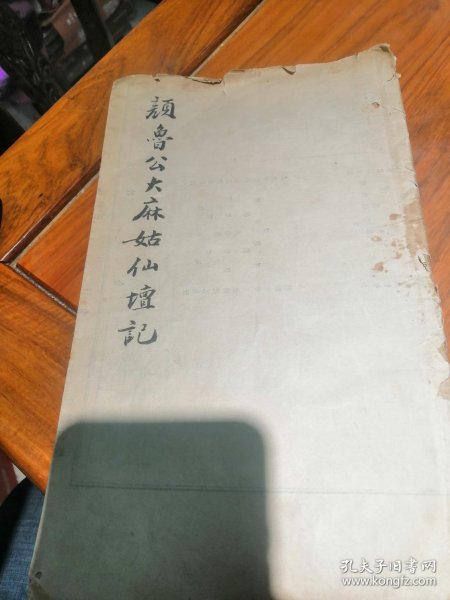 顔魯公大麻姑仙壇記
孔夫子旧书网
www.kongfz.com